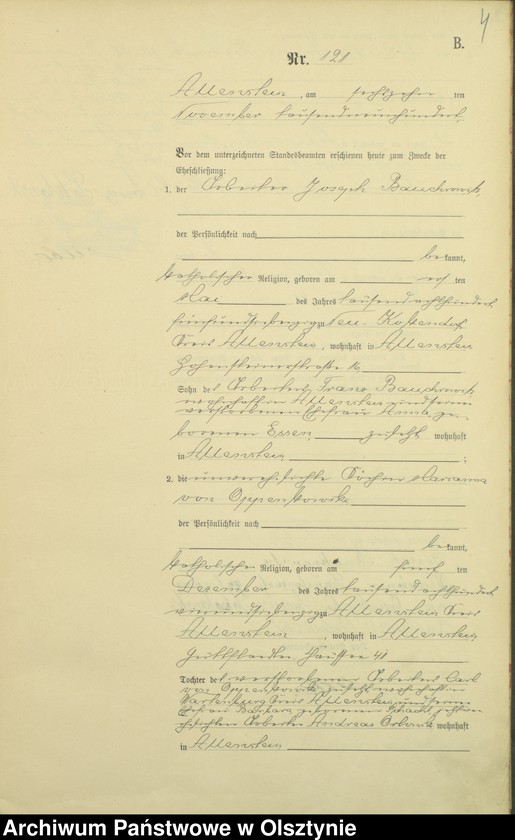 4
B.
Nr. 121
Allenstein, am sechszehn ten
November tausendneunhundert.
Vor dem unterzeichneten Standesbeamten erschienen heute zum Zwecke der
Eheschließung:
1. der Arbeiter Joseph
der Persönlichkeit nach
bekannt,
katholischer Religion, geboren am ten
Mai des Jahres tausendachthundert
fünfundsiebenzig zu Neu-Kockendorf
Kreis Allenstein, wohnhaft in Allenstein
Hohensteinerstraße 16
Sohn des Arbeiters Franz
wohnhaft in Allenstein und seiner
verstorbenen Ehefrau Anna ge-
borenen zuletzt wohnhaft
in Allenstein ;
2. die unverehelichte Köchin Marianna
von
der Persönlichkeit nach
bekannt,
katholischer Religion, geboren am fünf ten
Dezember des Jahres tausendachthundert
vierundsiebenzig zu Allenstein Kreis
Allenstein, wohnhaft in Allenstein,
Guttstädter Chaussee 41
Tochter des verstorbenen Arbeiters Carl
von zuletzt wohnhaft in
Wartenburg Kreis Allenstein und seiner
Ehefrau Barbara geborenen
Arbeiter Andreas wohnhaft
in Allenstein
Archiwum Państwowe w Olsztynie